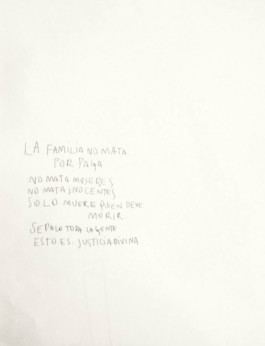 LA FAMILIA NO MATA
POR PAGA
NO MATA MUJERES
NO MATA INOCENTES
SOLO MUERE QUIEN DEVE
MORIR
SEPALO TODA LA GENTE
ESTO ES JUSTICIA DIVINA